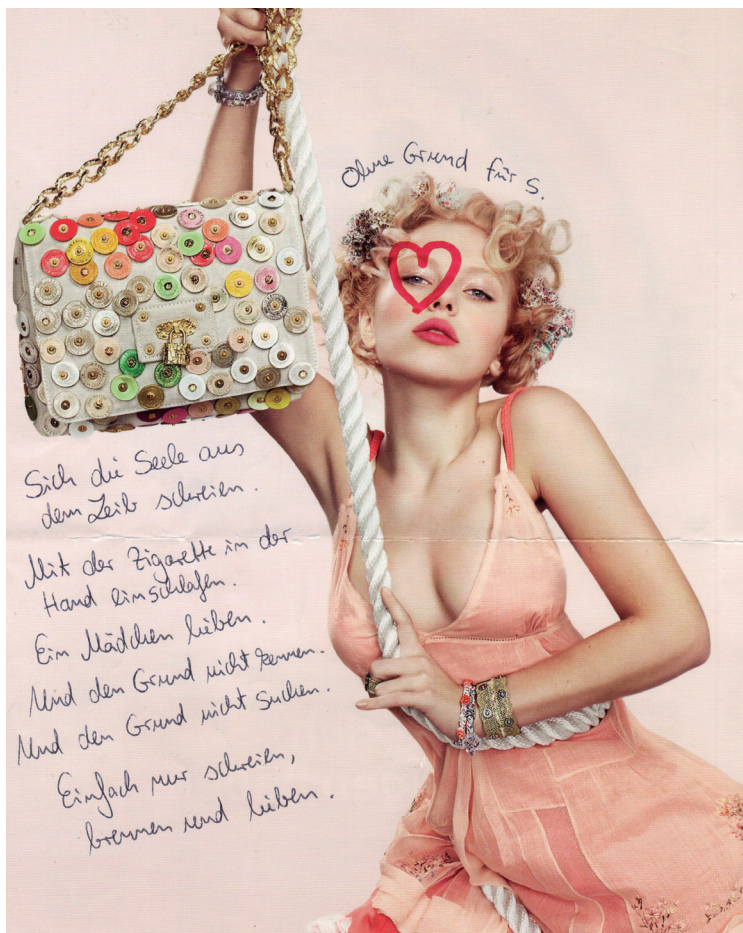 Ohne Grund für S.
Sich die Seele aus
dem Leib schreien.
Mit der Zigarette in der
Hand einschlafen.
Ein Mädchen lieben.
Und den Grund nicht kennen.
Und den Grund nicht suchen.
Einfach nur schreien,
brennen und lieben.